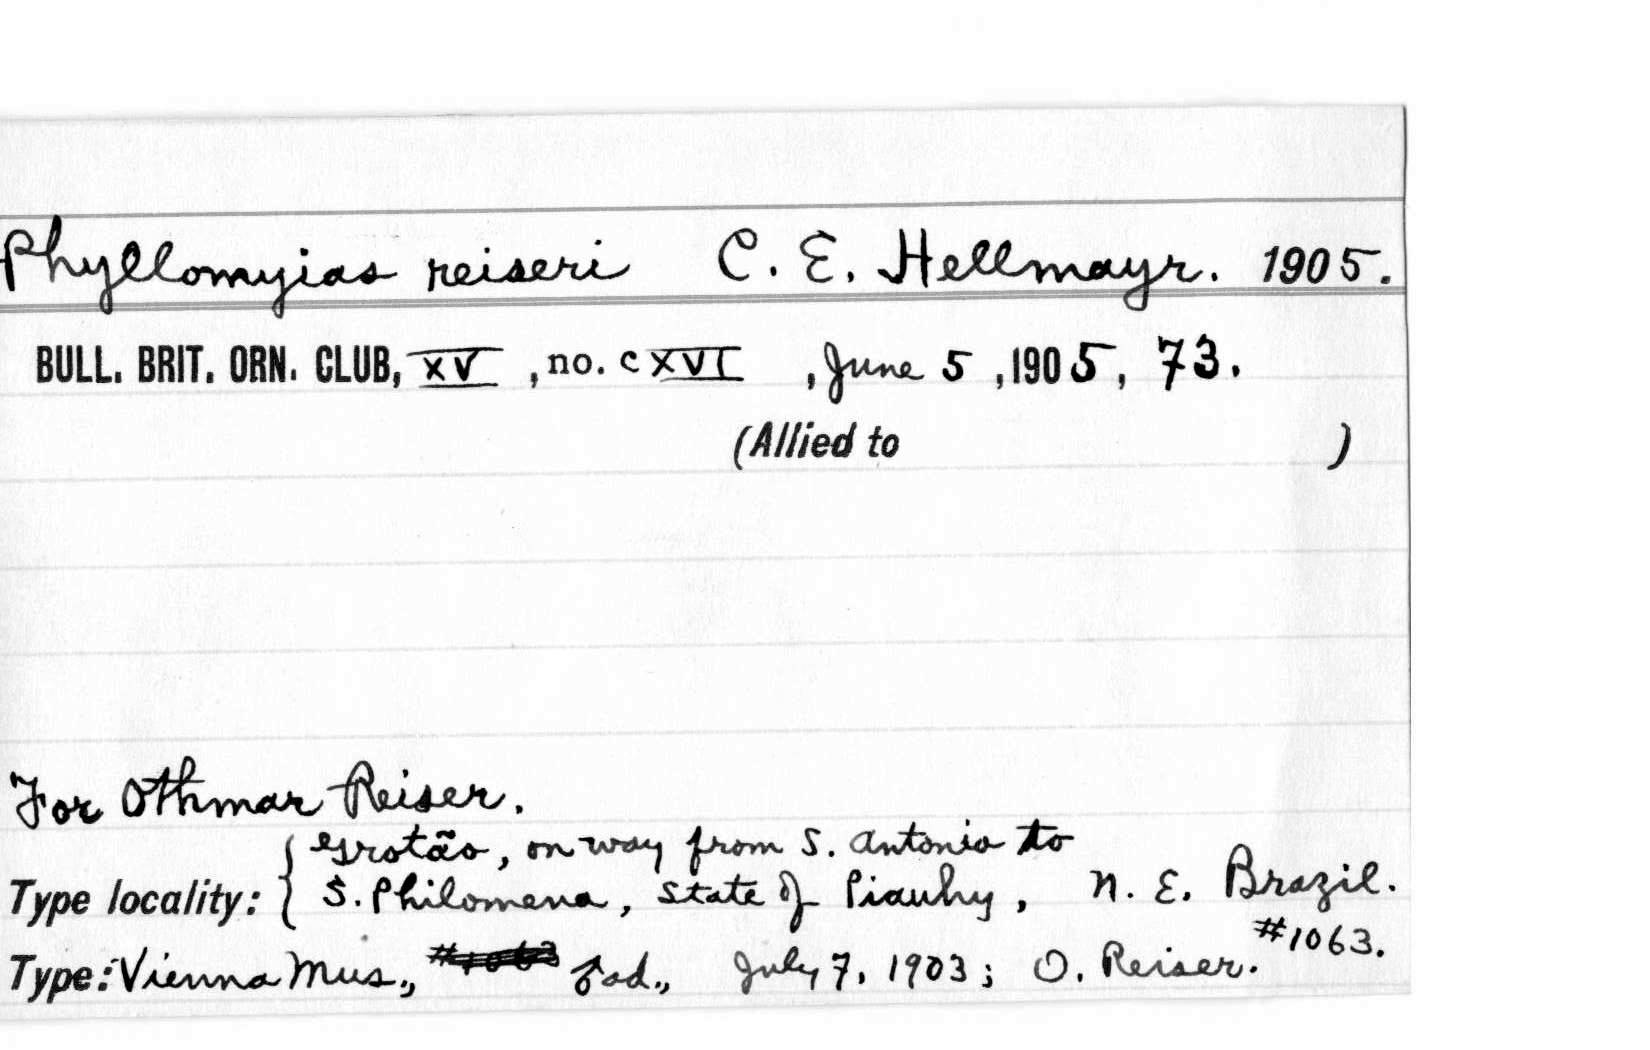 Phyllomyias reiseri C. E. Hellmayr. 1905.
BULL. BRIT. ORN. CLUB, XV, no. CXVI, June 5, 1905, 73.
(Allied to )
For Othmar Reiser.
Grotão, on way from S. Antonio to
Type locality: { S. Philomena, State of Piauhy, N. E. Brazil.
#1063.
Type: Vienna Mus., #1063 ♂ ad., July 7, 1903; O. Reiser.